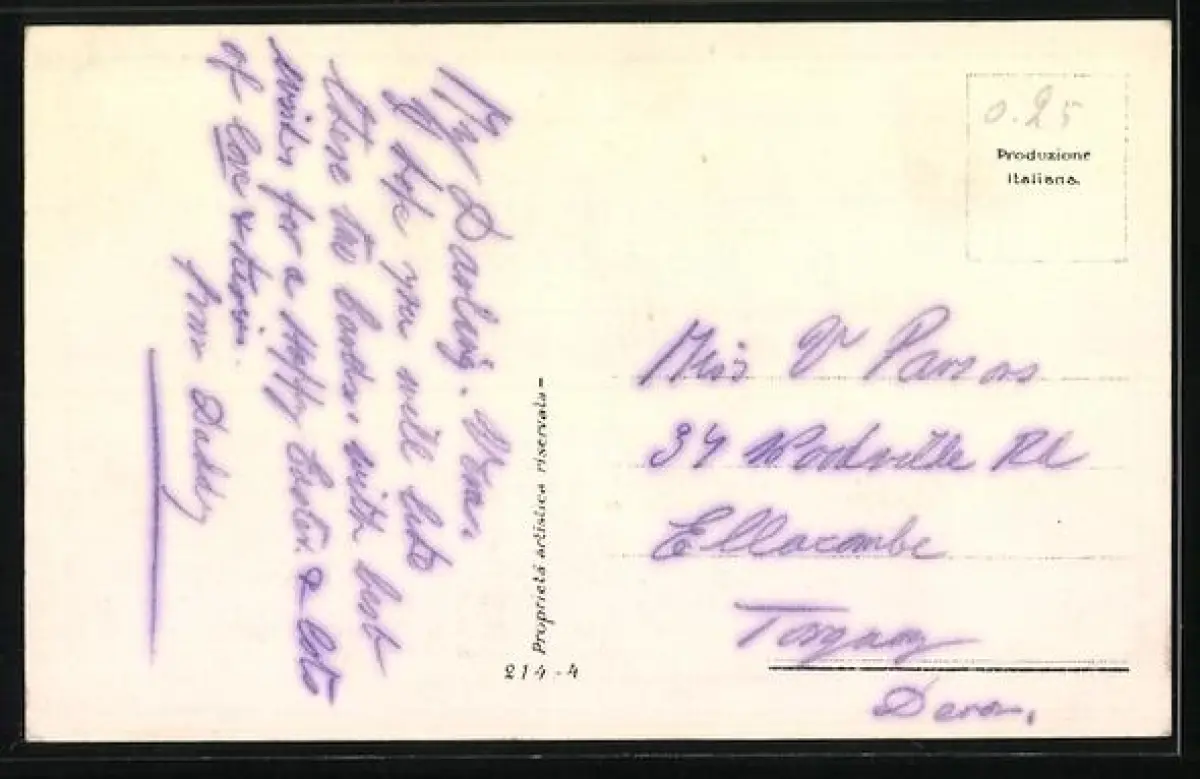 My Darling. Vera.
I hope you will like
these two cards. with best
wishes for a Happy Easter. & lots
of love & kisses.
from Daddy
Proprietà artistica riservata
214-4
0.25
Produzione
italiana.
Miss V Parsons
34 Woodville Rd
Ellacombe
Torquay
Devon.